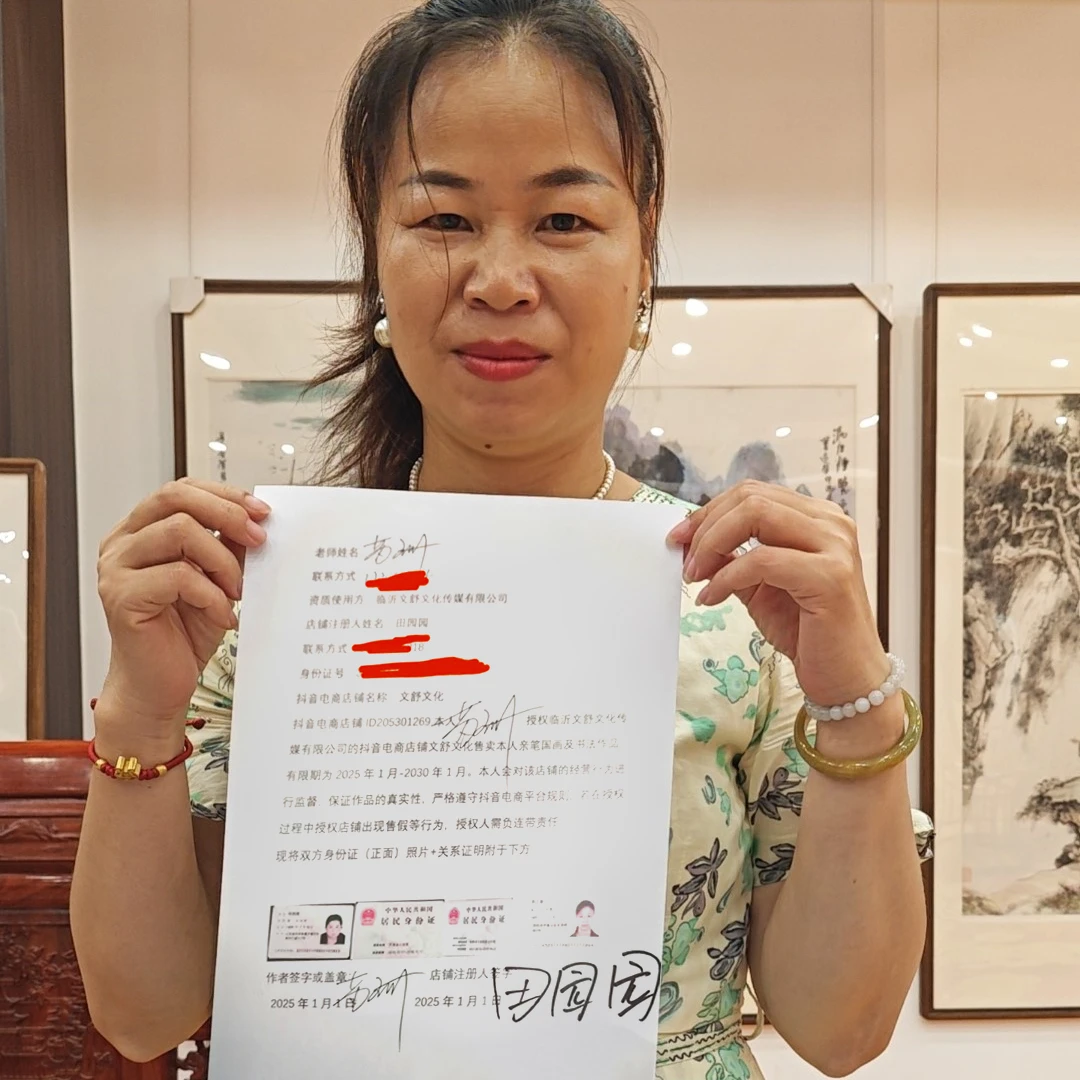 老师姓名
联系方式
资质使用方 临沂文舒文化传媒有限公司
店铺注册人姓名 田园园
联系方式 18
身份证号
抖音电商店铺名称 文舒文化
抖音电商店铺 ID205301269,本人 授权临沂文舒文化传
媒有限公司的抖音电商店铺文舒文化售卖本人亲笔国画及书法作品
有限期为 2025 年 1 月-2030 年 1 月。本人会对该店铺的经营行为进
行监督,保证作品的真实性,严格遵守抖音电商平台规则,若在授权
过程中授权店铺出现售假等行为,授权人需负连带责任
现将双方身份证(正面)照片+关系证明附于下方
中华人民共和国
居民身份证
中华人民共和国
居民身份证
作者签字或盖章 店铺注册人签字
2025 年 1 月 1 日 2025 年 1 月 1 日
田园园